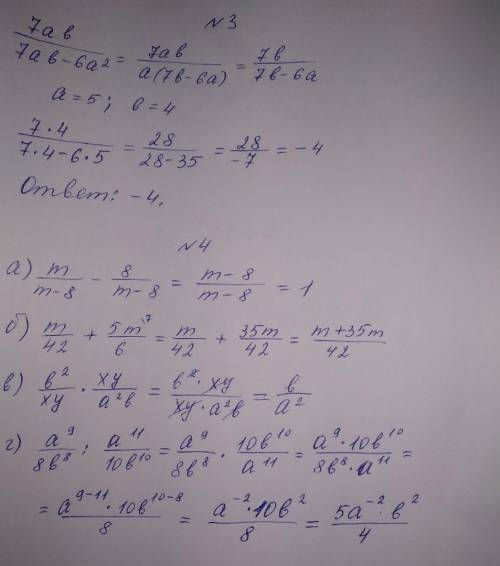 №3
7ab/(7ab-6a²) = 7ab/(a(7b-6a)) = 7b/(7b-6a)
a=5; b=4
(7·4)/(7·4-6·5) = 28/(28-35) = 28/-7 = -4
Ответ: -4.
№4
а) m/(m-8) - 8/(m-8) = (m-8)/(m-8) = 1
б) m/42 + 5m^(\7)/6 = m/42 + 35m/42 = (m+35m)/42
в) b²/xy · xy/(a²b) = (b²·xy)/(xy·a²b) = b/a²
г) a⁹/(8b⁸) : a¹¹/(10b¹⁰) = a⁹/(8b⁸) · 10b¹⁰/a¹¹ = (a⁹·10b¹⁰)/(8b⁸·a¹¹) =
= (a⁹⁻¹¹·10b¹⁰⁻⁸)/8 = (a⁻²·10b²)/8 = (5a⁻²·b²)/4